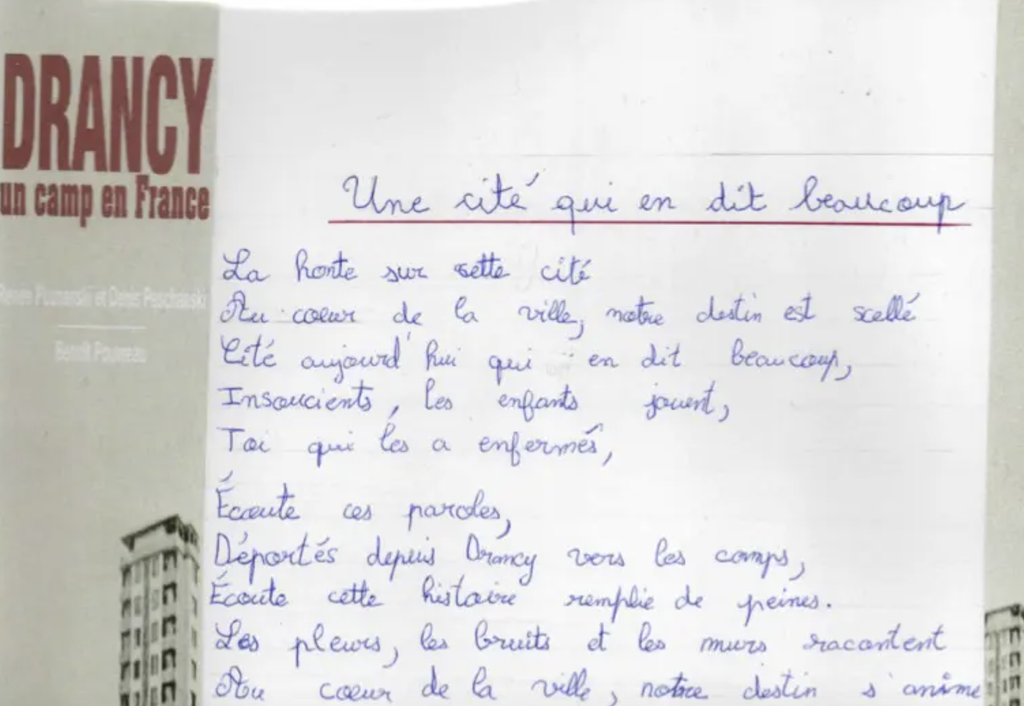 DRANCY
un camp en France
Renée Poznanski et Denis Peschanski
Benoît Pouvreau
Une cité qui en dit beaucoup
La honte sur cette cité
Au coeur de la ville, notre destin est scellé
Cité aujourd'hui qui en dit beaucoup,
Insoucients, les enfants jouent,
Toi qui les a enfermés,
Écoute ces paroles,
Déportés depuis Drancy vers les camps,
Écoute cette histoire remplie de peines.
Les pleurs, les bruits et les murs racontent
Au coeur de la ville, notre destin s'anime